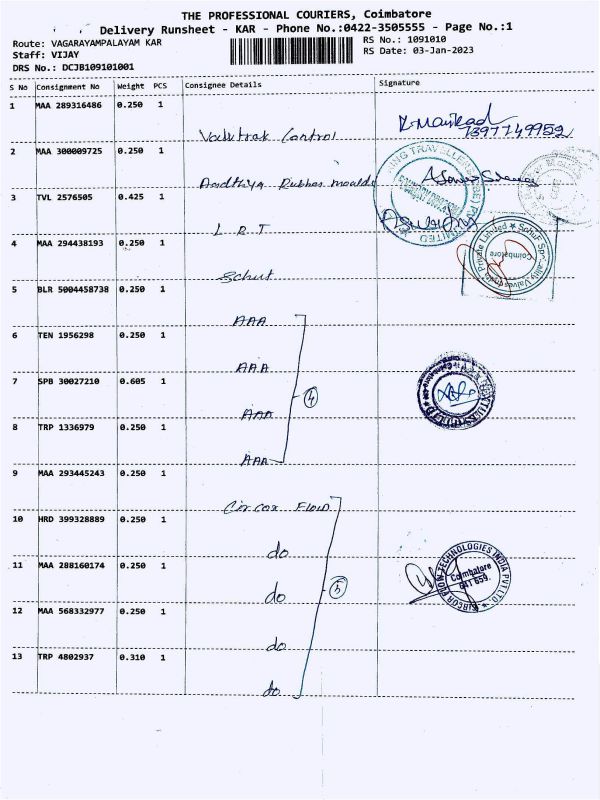 THE PROFESSIONAL COURIERS, Coimbatore
Delivery Runsheet - KAR - Phone No.:0422-3505555 - Page No.:1
Route: VAGARAYAMPALAYAM KAR
RS No.: 1091010
Staff: VIJAY
RS Date: 03-Jan-2023
DRS No.: DCJB109101001
S No Consignment No Weight PCS Consignee Details Signature
1 MAA 289316486 0.250 1
Control
7397749952
2 MAA 300009725 0.250 1
3 TVL 2576505 0.425 1
L R T
4 MAA 294438193 0.250 1
Coimbatore
5 BLR 5004458738 0.250 1
AAA
6 TEN 1956298 0.250 1
AAA
7 SPB 30027210 0.605 1
AAA
4
8 TRP 1336979 0.250 1
AAA
9 MAA 293445243 0.250 1
Circor Flow
10 HRD 399328889 0.250 1
do
11 MAA 288160174 0.250 1
do
5
TECHNOLOGIES INDIA PVT LTD
Coimbatore
641 659.
12 MAA 568332977 0.250 1
do
13 TRP 4802937 0.310 1
do